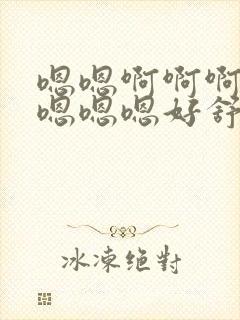 嗯嗯啊啊啊
嗯嗯嗯好舒
冰凍绝對